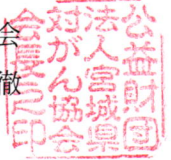 会
徹
公益財団
法人宮城県
対がん協会
会長之印